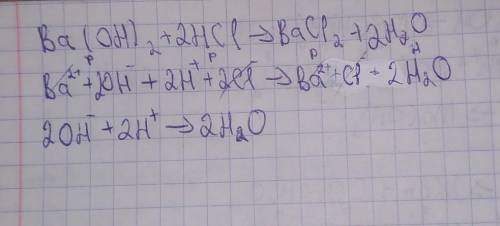 Ba(OH)₂ + 2HCl → BaCl₂ + 2H₂O
р р р н
Ba²⁺ + 2OH⁻ + 2H⁺ + 2Cl⁻ → Ba²⁺ + Cl⁻ + 2H₂O
2OH⁻ + 2H⁺ → 2H₂O